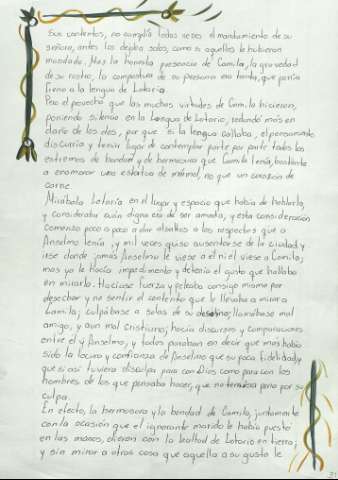 sus contentos, no cumplía todas veces el mandamiento de su
señora, antes los dejaba solos, como si aquello le hubieran
mandado. Mas la honesta presencia de Camila, la gravedad
de su rostro, la compostura de su persona era tanta, que ponía
freno a la lengua de Lotario.
Pero el provecho que las muchas virtudes de Camila hicieron,
poniendo silencio en la lengua de Lotario, redundó más en
daño de los dos, por que si la lengua callaba, el pensamiento
discurría y tenía lugar de contemplar parte por parte todos los
estremos de bondad y de hermosura que Camila tenía, bastantes
a enamorar una estatua de mármol, no que un corazón de
carne.
Mirábala Lotario en el lugar y espacio que había de hablarla,
y consideraba cuán digna era de ser amada, y esta consideración
comenzó poco a poco a dar asaltos a los respectos que a
Anselmo tenía, y mil veces quiso ausentarse de la ciudad y
irse donde jamás Anselmo le viese a él ni él viese a Camila;
mas ya le hacía impedimento y detenía el gusto que hallaba
en mirarla. Hacíase fuerza y peleaba consigo mismo por
desechar y no sentir el contento que le llevaba a mirar a
Camila; culpábase a solas de su desatino; llamábase mal
amigo, y aun mal cristiano; hacía discursos y comparaciones
entre él y Anselmo, y todos paraban en decir que más había
sido la locura y confianza de Anselmo que su poca fidelidad, y
que si así tuviera disculpa para con Dios como para con los
hombres de lo que pensaba hacer, que no temiera pena por su
culpa.
En efecto, la hermosura y la bondad de Camila, juntamente
con la ocasión que el ignorante marido le había puesto
en las manos, dieron con la lealtad de Lotario en tierra;
y sin mirar a otra cosa que aquella a su gusto le